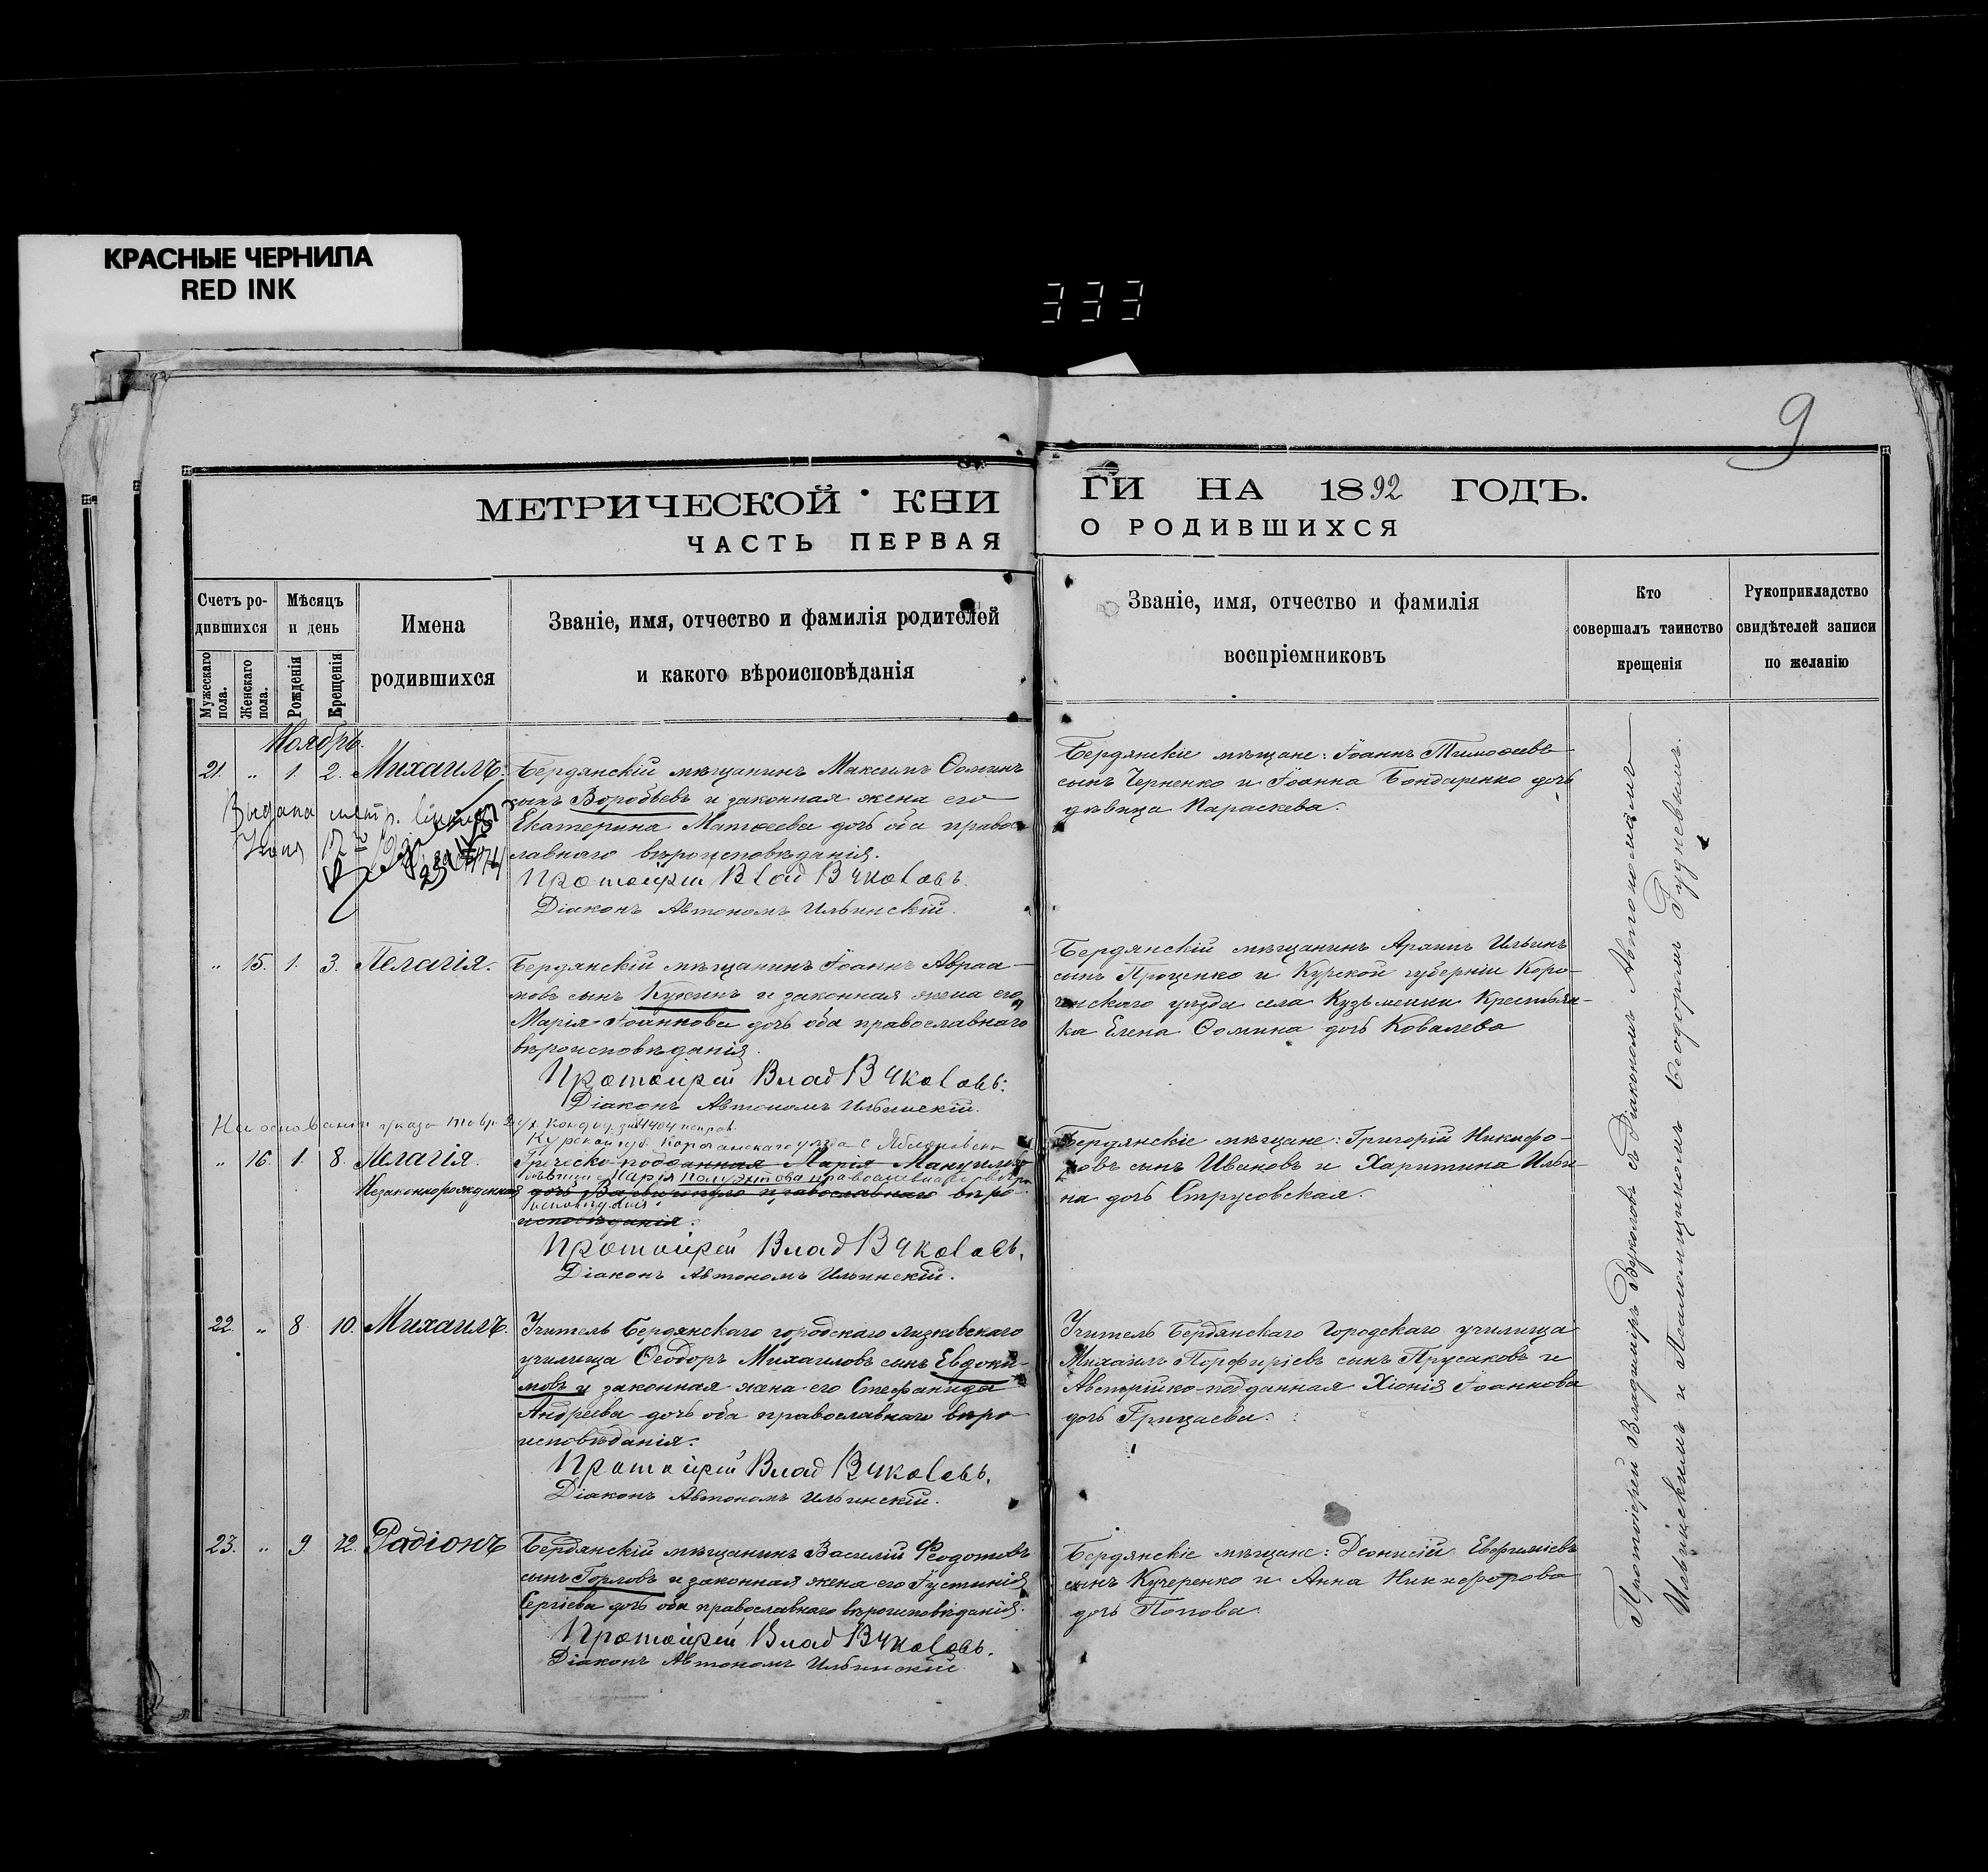 КРАСНЫЕ ЧЕРНИЛА
RED INK
333
9
МЕТРИЧЕСКОЙ КНИ
ЧАСТЬ ПЕРВАЯ
ГИ НА 1892 ГОДЪ.
О РОДИВШИХСЯ
Счетъ ро-
дившихся
Мужескаго пола.
Женскаго пола.
Мѣсяцъ
и день
Рожденія
Крещенія
Имена
родившихся
Званіе, имя, отчество и фамилія родителей
и какого вѣроисповѣданія
Званіе, имя, отчество и фамилія
воспріемниковъ
Кто
совершалъ таинство
крещенія
Рукоприкладство
свидѣтелей записи
по желанію
Ноябрь.
21. „ 1. 2. Михаилъ.
Бердянскій мѣщанинъ Максимъ Ѳоминъ
сынъ Воробьевъ и законная жена его
Екатерина Матѳеева дочь оба правос
лавнаго вѣроисповѣданія.
Протоіерей Влад Вуколовъ.
Діаконъ Автономъ Ильинскій.
Выдана метр.
Бердянскіе мѣщане: Іоаннъ Тимоѳеевъ
сынъ Черненко и Іоанна Бондаренко дочь
дѣвица Параскева.
„ 15. 1. 3. Пелагія.
Бердянскій мѣщанинъ Іоаннъ Авраа-
мовъ сынъ Кукинъ и законная жена его
Марія Іоаннова дочь оба православнаго
вѣроисповѣданія.
Протоіерей Влад Вуколовъ.
Діаконъ Автономъ Ильинскій.
Бердянскій мѣщанинъ Архипъ Ильинъ
сынъ Проценко и Курской губерніи Коро-
чанскаго уѣзда села Кузьменки Крестьян-
ка Елена Ѳомина дочь Ковалева
На основаніи указа
Курской губ. Корочанскаго уѣзда с.
„ 16. 1. 8. Пелагія.
Незаконнорожденная
Греческо-подданная Марія Мануилова
Марія православнаго
дочь православнаго вѣро-
исповѣданія.
Протоіерей Влад Вуколовъ.
Діаконъ Автономъ Ильинскій.
Бердянскіе мѣщане: Григорій Никифо-
ровъ сынъ Ивановъ и Харитина Ильи-
на дочь Струсовская.
22. „ 8. 10. Михаилъ.
Учитель Бердянскаго городскаго
училища Ѳеодоръ Михаиловъ сынъ Евдоки-
мовъ и законная жена его Стефанида
Андреева дочь оба православнаго вѣро-
исповѣданія.
Протоіерей Влад Вуколовъ.
Діаконъ Автономъ Ильинскій.
Учитель Бердянскаго Городскаго училища
Михаилъ Порфиріевъ сынъ Прусаковъ и
Австрійско-подданная Хіонія Іоаннова
дочь Грицаева.
23. „ 9. 12. Радіонъ
Бердянскій мѣщанинъ Василій Феодотовъ
сынъ Горловъ и законная жена его Іустинія
Сергіева дочь оба православнаго вѣроисповѣданія.
Протоіерей Влад Вуколовъ.
Діаконъ Автономъ Ильинскій
Бердянскіе мѣщане: Діонисій Евфиміевъ
сынъ Кучеренко и Анна Никифорова
дочь Попова
Протоіерей Владиміръ Вуколовъ съ Діакономъ Автономомъ
Ильинскимъ и Псаломщикомъ Ѳеодоромъ Рудневымъ.